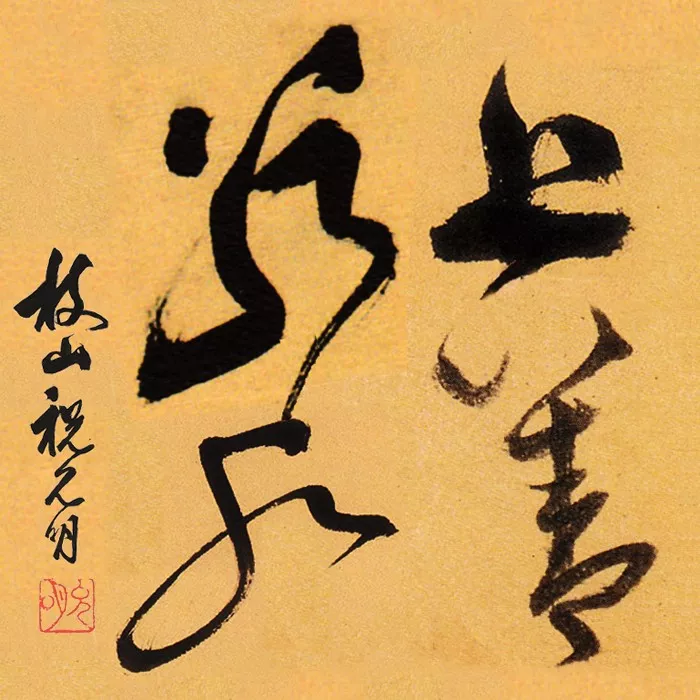 上善
若水
枝山祝允明
允明